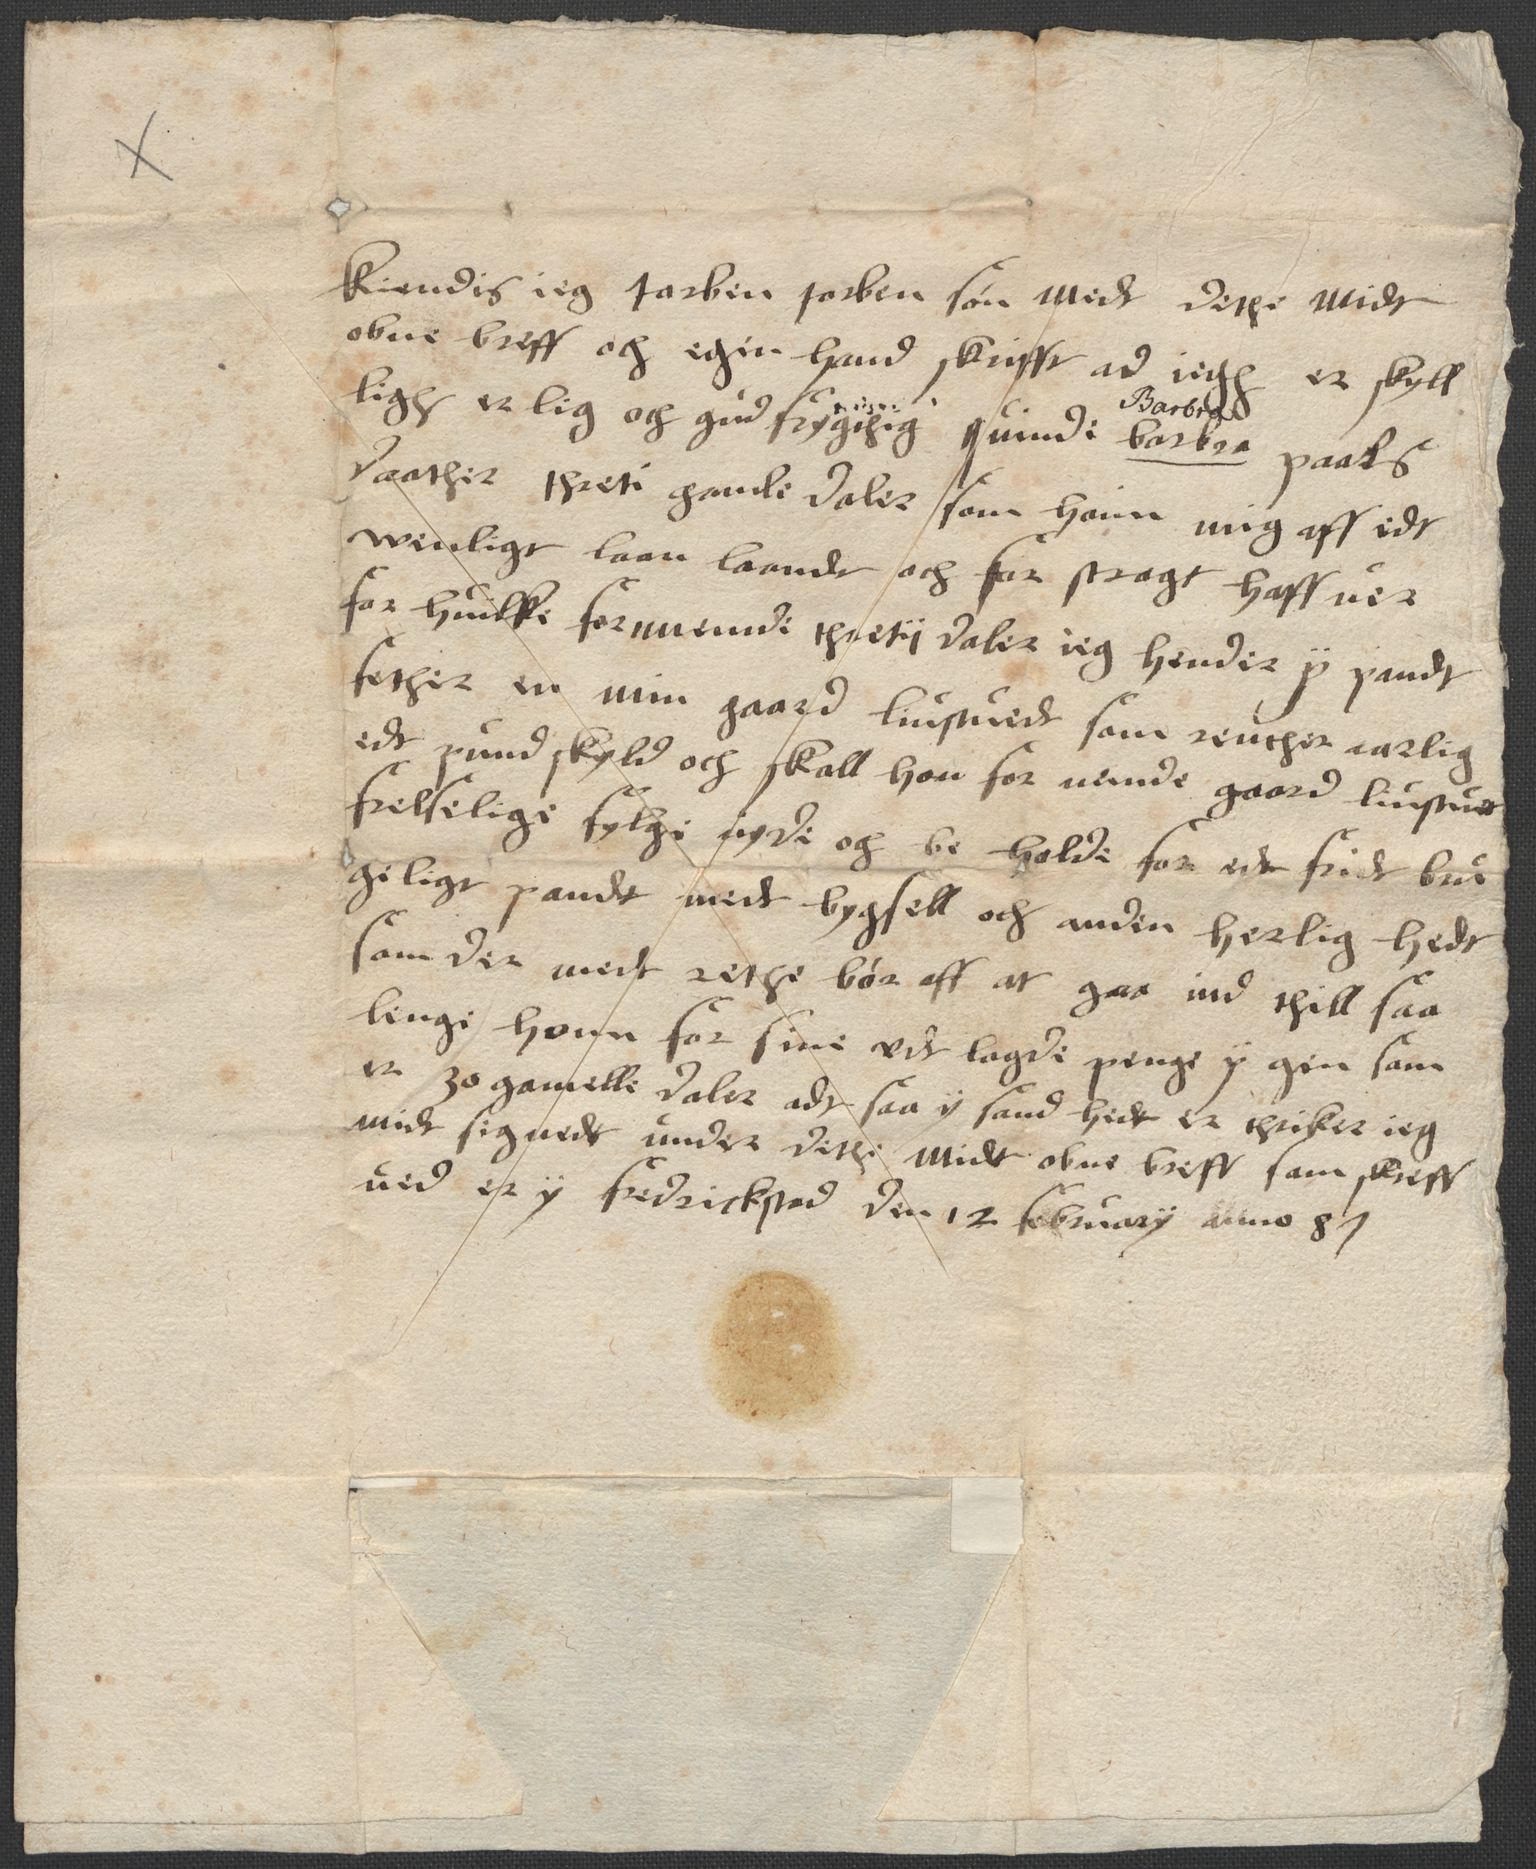 Kiendis ieg torben torben sön medt dethe midt
obne breff och egen hand skrifft ad iegh er skyll
ligh er lig och gud frygthig quinde Barbra barbra paals
daather threti gamle daler som hoin mig aff edt
wenligt laan laandt och for stragt haffuer
for huilke for nemde thretij daler ieg hender y pandt
sether en min gaard liustuedt som renther aarlig
edt pund skyld och skall hon for nemde gaard liustuet
frelselige fylge nyde och be holde for edt fridt bru
geligt pandt medt bygsell och anden herlig hedt
som der medt rethe bör aff at gaa ind thill saa
lenge honn for sine vdt lagde penge y gen som
er 30 gamelle daler adt saa y sand hedt er thriker ieg
midt signedt under dethe midt obne breff som skreff
ued er y fredrickstad den 12 februarij anno 87